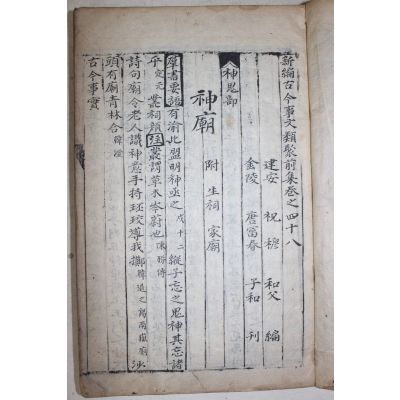 新編古今事文類聚前集卷之四十八
建安 祝穆 和父 編
金陵 唐富春 子和 刊
神鬼部
神廟 附生祠 家廟
羣書要語 有渝此盟明神殛之 縱子忘之鬼神其忘諸
乎 叢祠 叢謂草木岑蔚也 陳勝傳
詩句 廟令老人識神意手持珓投導我擲 韓退之謁南嶽廟
頭有廟青林合 韓溉
古今事實